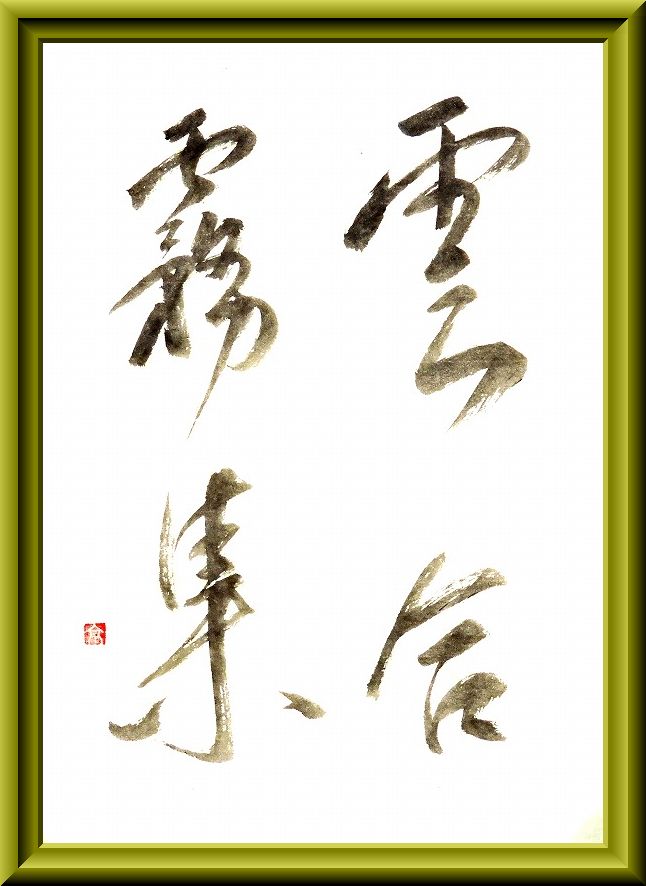 雲合
霧集